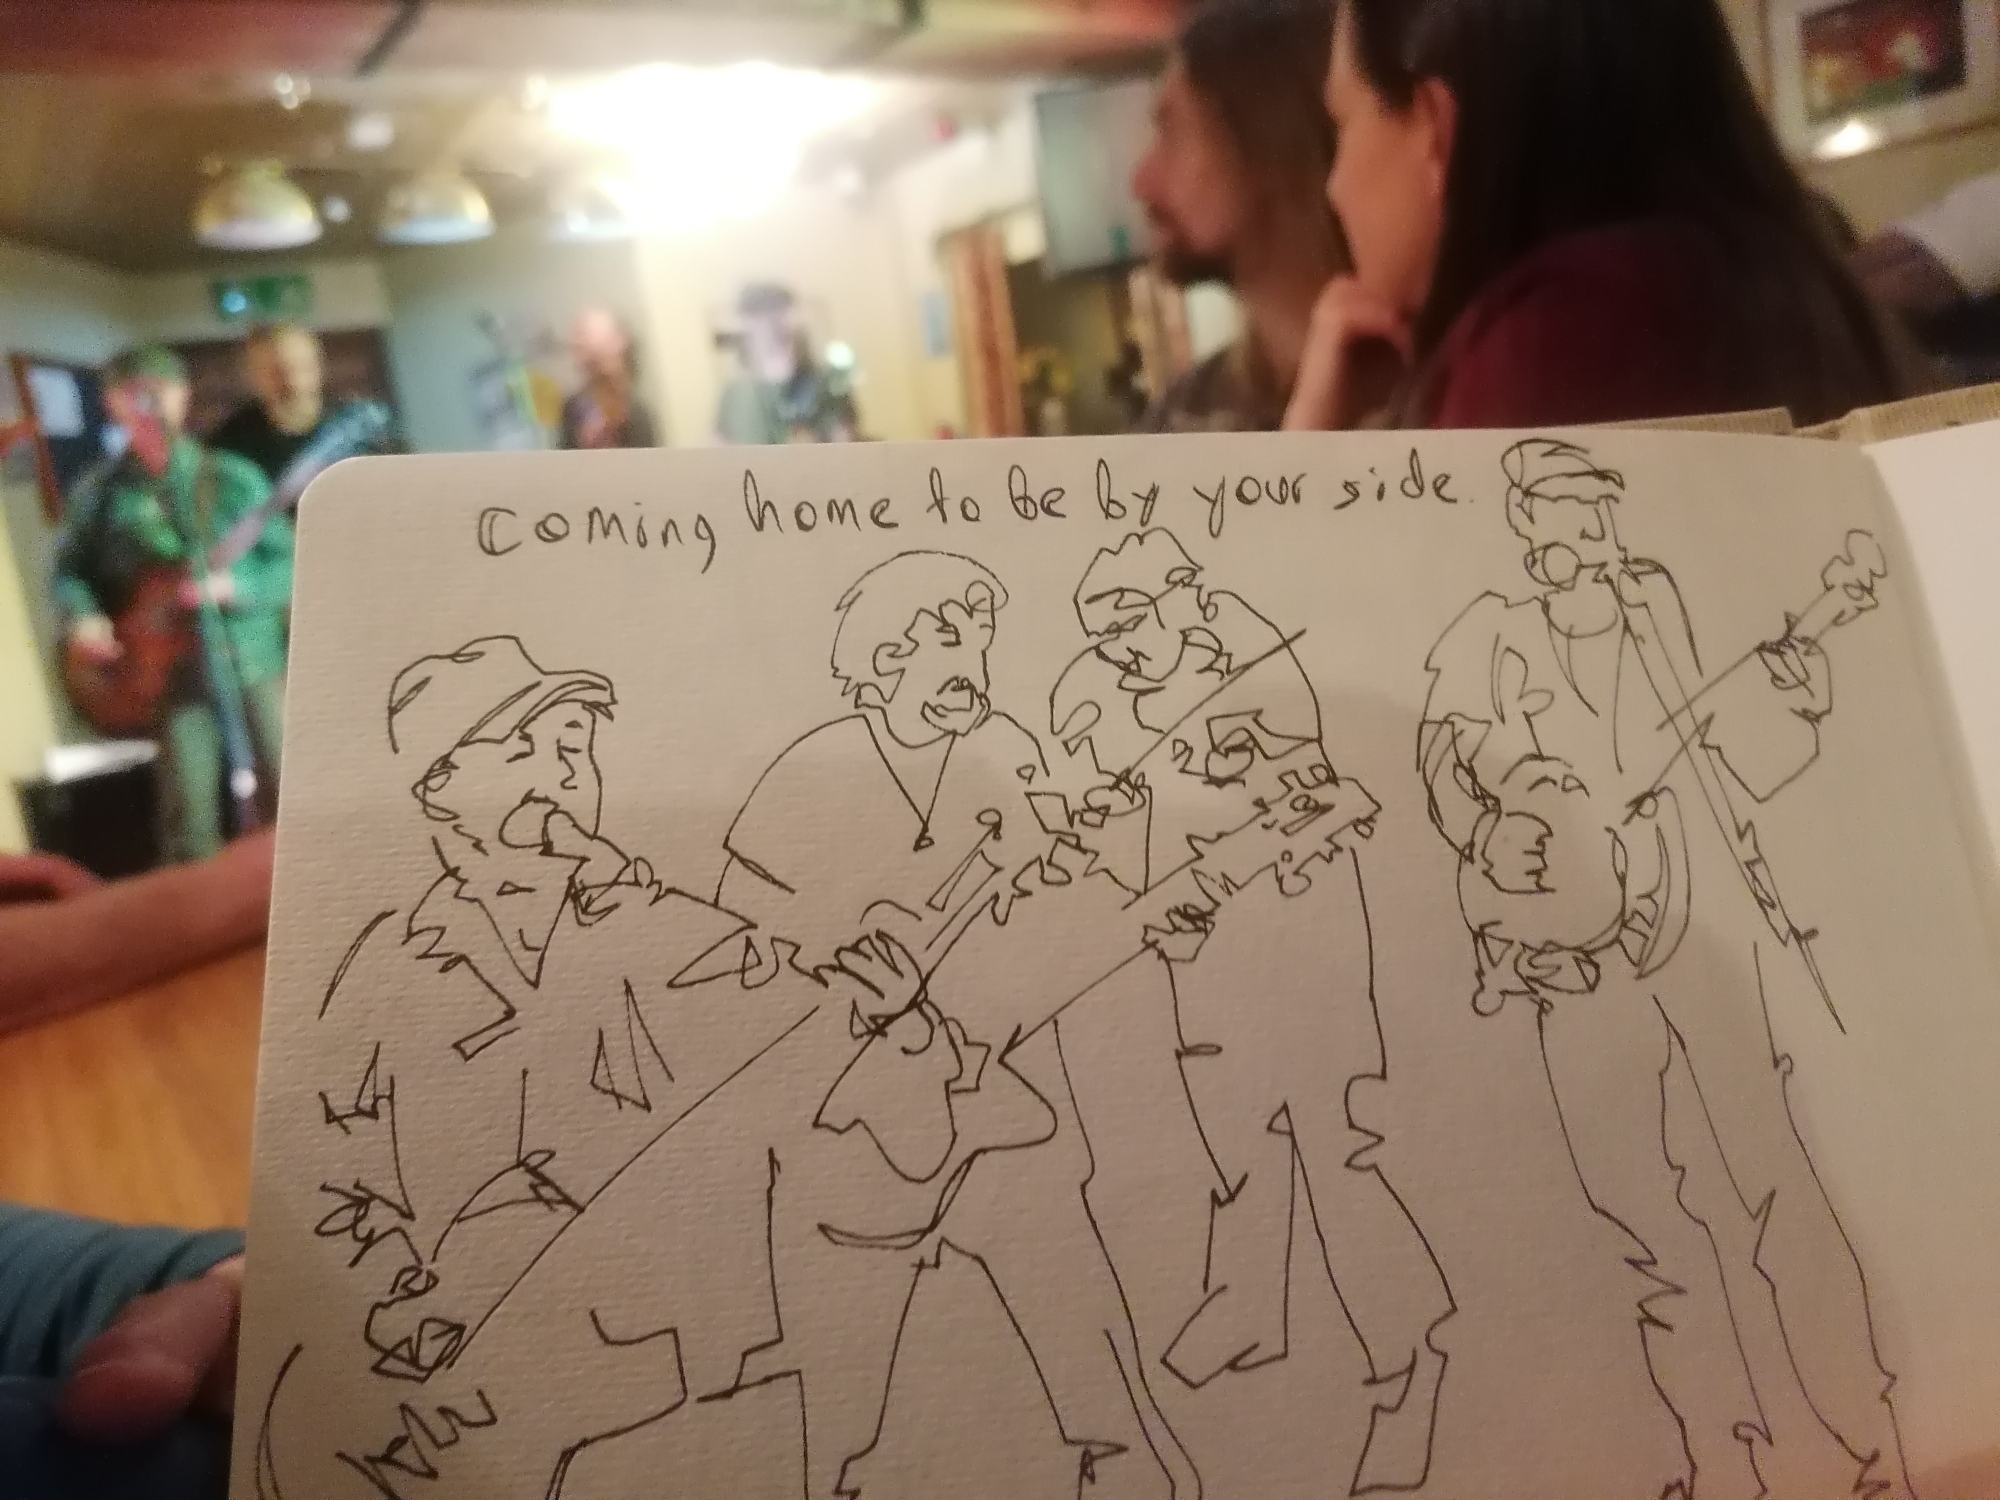 coming home to be by your side.